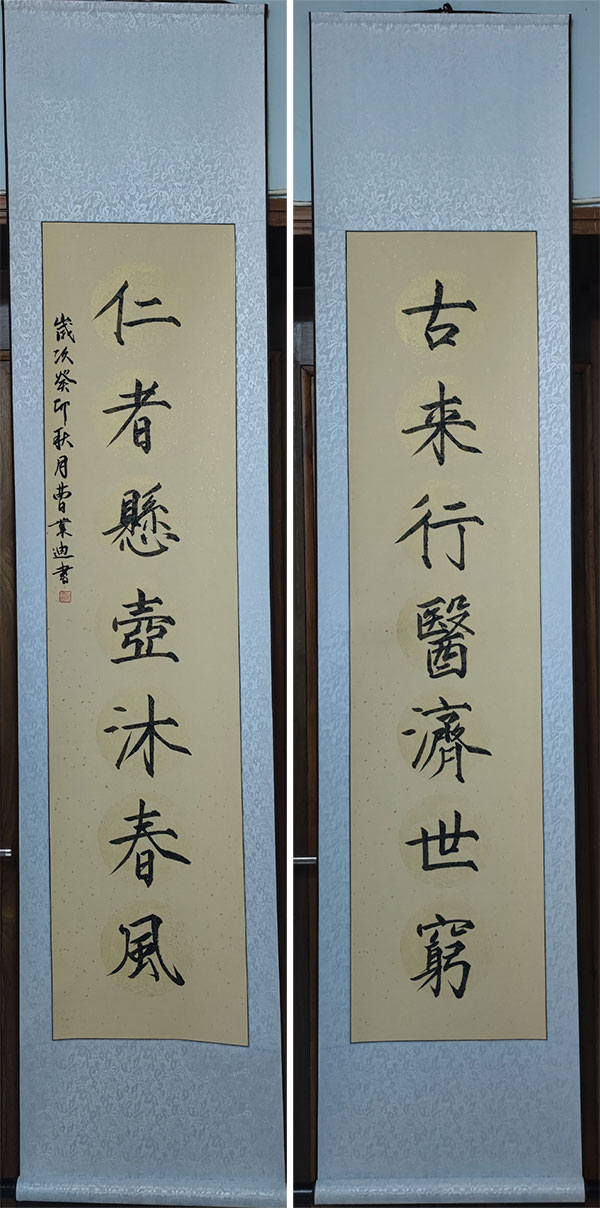 古来行醫濟世窮
仁者懸壺沐春風
歲次癸卯秋月曹業迪書